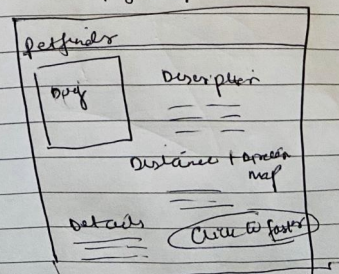 Petfinder
Dog
Description
Distance + Dream
map
Details
Click to foster